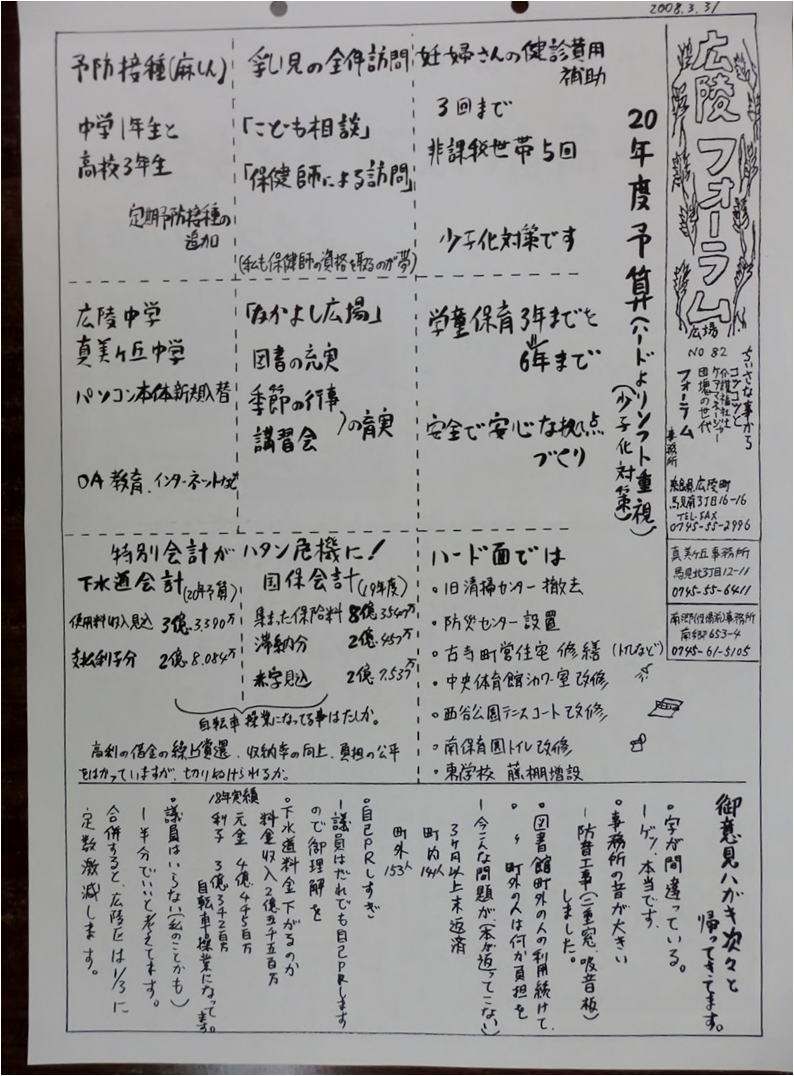 2008.3.31
広陵フォーラム
広場
NO 82
ちいさな事から
コツコツと
介護福祉士
ケアマネージャー
団塊の世代
フォーラム
事務所
奈良県広陵町
馬見南3丁目16-16
TEL・FAX
0745-55-2996
真美ヶ丘事務所
馬見北3丁目12-11
0745-55-6411
南郷(役場前)事務所
南郷653-4
0745-61-5105
20年度予算(ハードよりソフト重視)
(少子化対策)
妊婦さんの健診費用
補助
3回まで
非課税世帯5回
少子化対策です
乳児の全件訪問
「こども相談」
「保健師による訪問」
(私も保健師の資格を取るのが夢)
予防接種(麻しん)
中学1年生と
高校3年生
定期予防接種の
追加
学童保育3年までを
6年まで
安全で安心な拠点
づくり
「なかよし広場」
図書の充実
季節の行事
講習会
)の充実
広陵中学
真美ヶ丘中学
パソコン本体新規入替
OA教育、インターネットなど
ハード面では
・旧清掃センター撤去
・防災センター設置
・古寺町営住宅修繕(トイレなど)
・中央体育館シャワー室改修
・西谷公園テニスコート改修
・南保育園トイレ改修
・東学校 藤棚増設
特別会計がハタン危機に!
下水道会計(20年予算)
使用料収入見込 3億3,390万
支払利子分 2億8,084万
国保会計(19年度)
集まった保険料 8億3547万
滞納分 2億457万
赤字見込 2億7,537万
自転車操業になってる事はたしか。
高利の借金の繰上償還、収納率の向上、負担の公平
をはかっていますが、切りぬけられるか。
御意見ハガキ次々と
帰ってきてます。
・字が間違っている。
ーゲッ、本当です。
・事務所の音が大きい
ー防音工事(二重窓、吸音板)
しました。
・図書館町外の人の利用続けて
・〃 町外の人は何か負担を
ー今こんな問題が(本が返ってこない)
3ヶ月以上未返済
町内141人
町外153人
・自己PRしすぎ
ー議員はだれでも自己PRします
ので御理解を
・下水道料金下がるのか
料金収入2億5千5百万
18年実績
元金 4億4千5百万
利子 3億3千2百万
自転車操業になって
ます。
・議員はいらない(私のことかも)
ー半分でいいと考えてます。
合併すると、広陵区は1/3に
定数激減します。